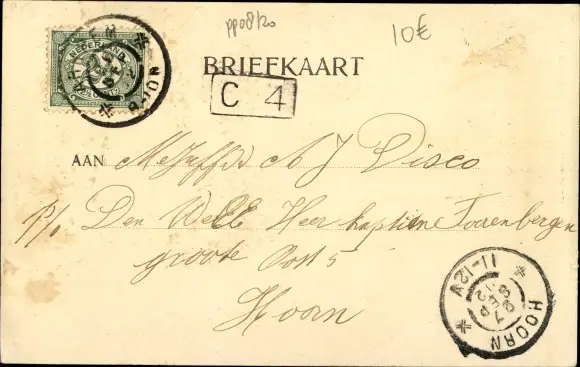 pp08/20
10€
NEDERLAND
BRIEFKAART
C 4
AAN Mejuffdr A J Disco
p/a Den WelE Heer kapitein Toorenbergen
groote Oost 5
Hoorn
HOORN
27 SEP
11-12V